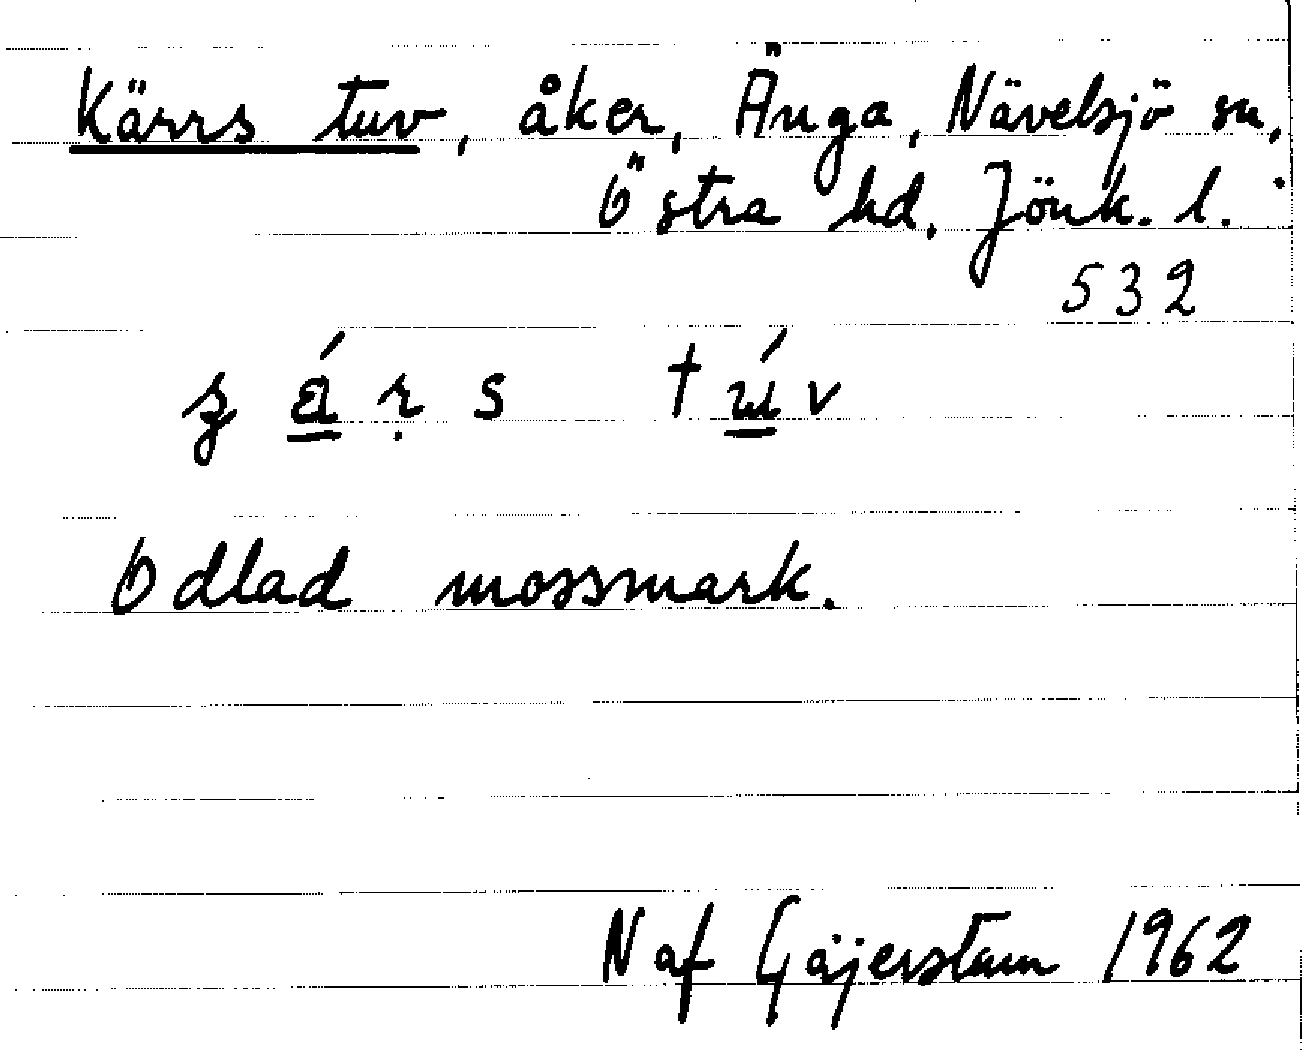 Kärrs tuv, åker, Änga, Nävelsjö sn,
Östra hd. Jönk. l.
532
Odlad mossmark.
N af Gäjerstam 1962